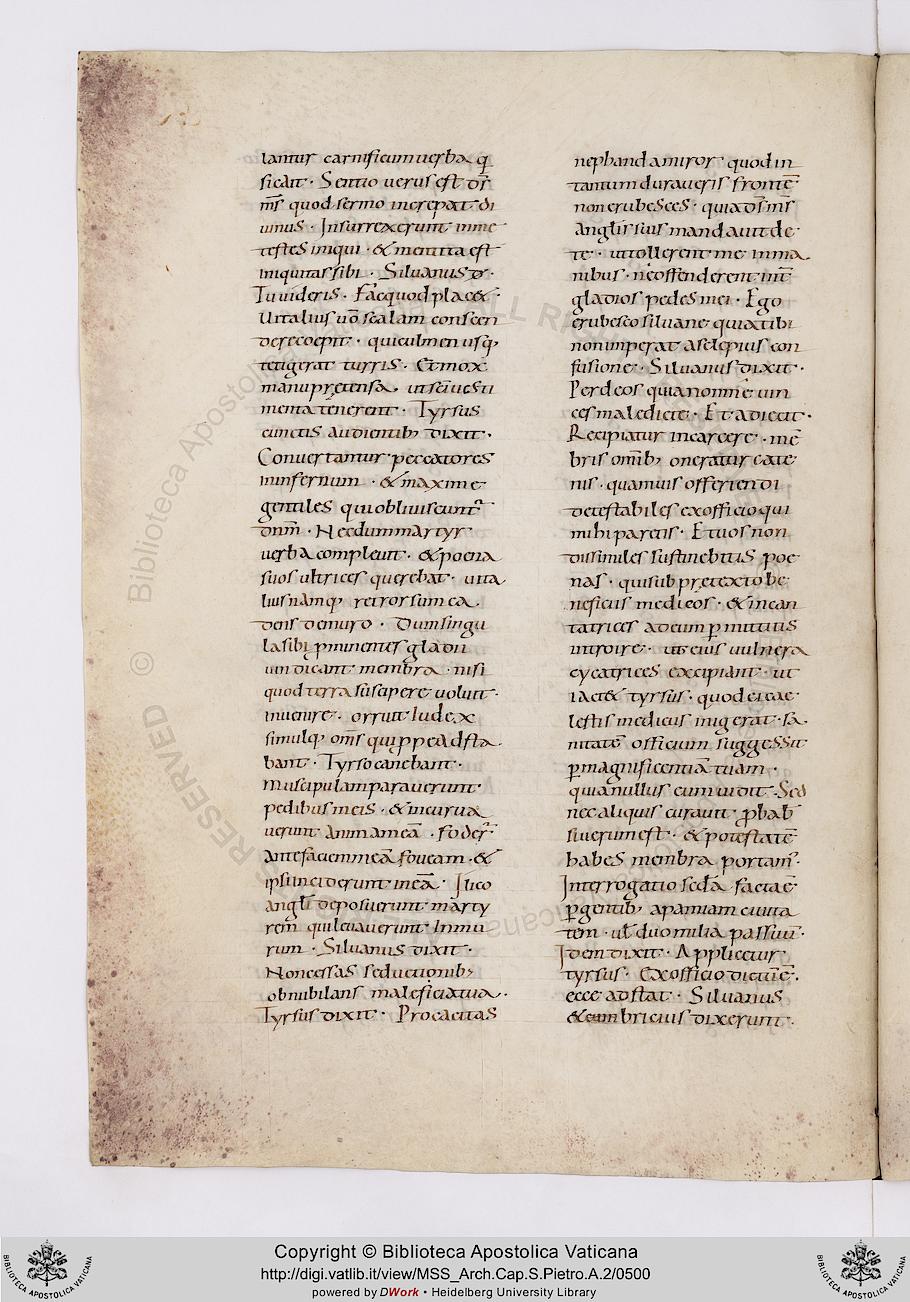 lantur carnificum uerba q
sicait · Sentio uerus est dr̄
m̄s quod sermo increpat di
uinus · Insurrexerunt inme
testes iniqui · & mentita est
iniquitas sibi · Siluanus dr̄ ·
Tu uideris · Fac quod plac& ·
Uitalius uō scalam conscen
dere coepit · qui culmen usq;
tetigerat turris · Et mox
manu pretensa · ut seu uesti
menta tenerent · Tyrsus
cunctis audientib; dixit ·
Conuertantur peccatores
in infernum · & maxime
gentiles qui obliuiscunt̄
dnm̄ · Necdum martyr
uerba compleuit · & poena
suos ultrices querebat · uita
lius namq; retrorsum ca
dens de muro · Dum singu
la sibi p̄minentes gladii
uindicant membra · nisi
quod terra suscipere uoluit ·
inuenire · orruit Iudex
simulq; om̄s qui p̄pe adsta
bant · Tyrso canebant ·
Muscipulam parauerunt
pedibus meis · & incurua
uerunt animam eā · foder̄
ante faciem meā foueam · &
ipsi inciderunt in eā · Ilico
angl̄i deposuerunt marty
rem̄ qui leuauerunt in mu
rum · Siluanus dixit ·
Non cessas seductionib;
obnubilans maleficia tua ·
Tyrsus dixit · Procacitas
nephanda miror quod in
tantum duraueris frontē
non erubesces · quia ds̄ m̄s
angl̄is suis mandauit de
te · ut tollerent me in ma
nibus · ne offenderent int̄
gladios pedes mei · Ego
erubesco siluane quia tibi
non imperat asclepius con
fusione · Siluanus dixit ·
Per deos quia non mē uin
ces maledicte · Et adiecit ·
Recipiatur in carcere · mē
bris omib; oneratur cate
nis · quamuis offeriendi
detestabiles ex officio qui
mihi paretis · Et uos non
dissimiles sustinebitis poe
nas · qui sub pretexto be
neficiis medicos · & incan
tatrices ad eum p̄mittitis
introire · ut eius uulnera
cycatrices excipiant · ut
iact& tyrsus · quod ei cae
lestis medicus inigerat · sa
nitatē officium suggessit
p̄magnificentiā tuam ·
quia nullus eum uidit · Sed
nec aliquis curauit · p̄bab̄
si uerum est · & potestatē
habes membra portam̄ ·
Interrogatio scd̄a facta ē
p̄gentib; apamiam ciuita
tem · ul̄ duo milia passuū ·
Idem dixit · Applicetur
tyrsus · Ex officio dictū ē ·
ecce adstat · Siluanus
& cumbricius dixerunt ·
Copyright © Biblioteca Apostolica Vaticana
http://digi.vatlib.it/view/MSS_Arch.Cap.S.Pietro.A.2/0500
powered by DWork • Heidelberg University Library